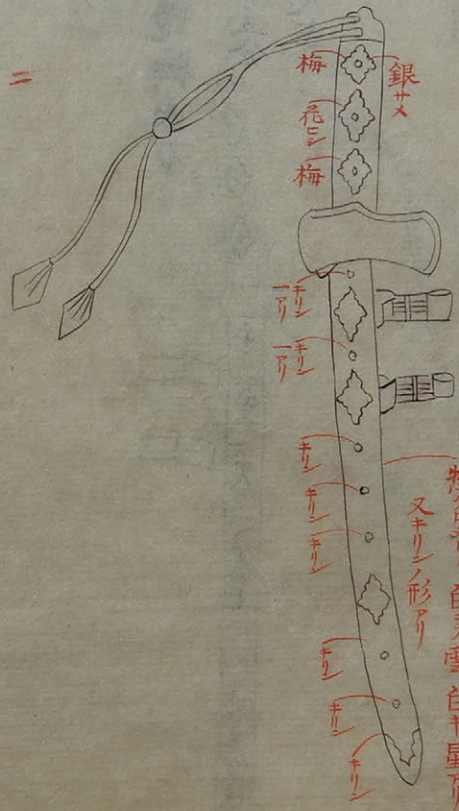 銀サメ
梅
花ビシ
梅
キリン
一アリ
キリン
一アリ
キリン
キリン
キリン
又キリンノ形アリ
キリン
キリン
キリン
二